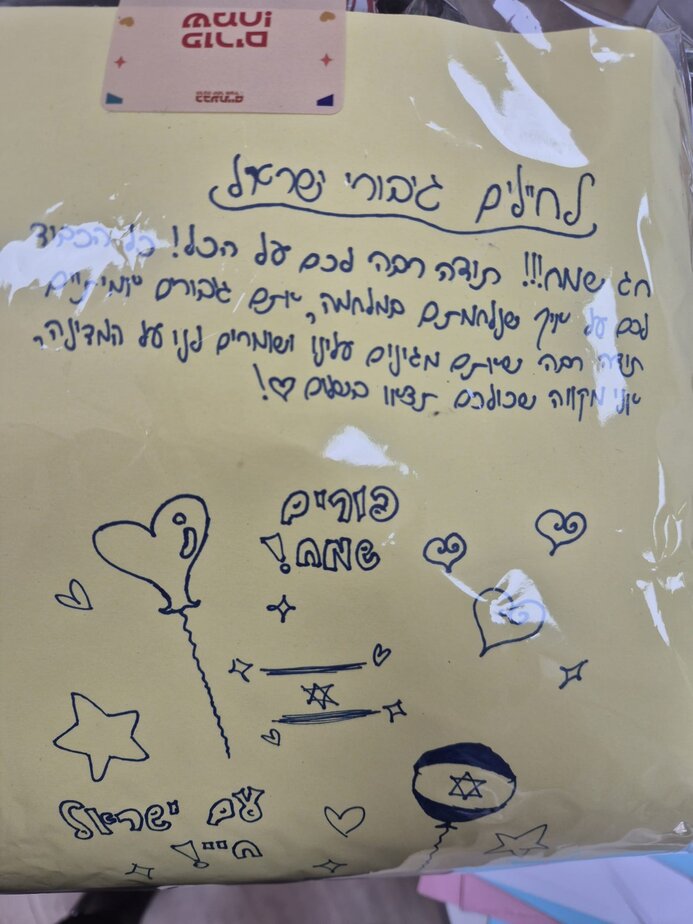 לחיילים גיבורי ישראל
חג שמח!!! תודה רבה לכם על הכל! כל הכבוד
לכם על איך שנלחמתם במלחמה, אתם גיבורים אמיתיים
תודה רבה שאתם מגינים עלינו ושומרים לנו על המדינה,
אני מקווה שכולכם תצאו בשלום ♡!
פורים
שמח!
עם ישראל
חיי!